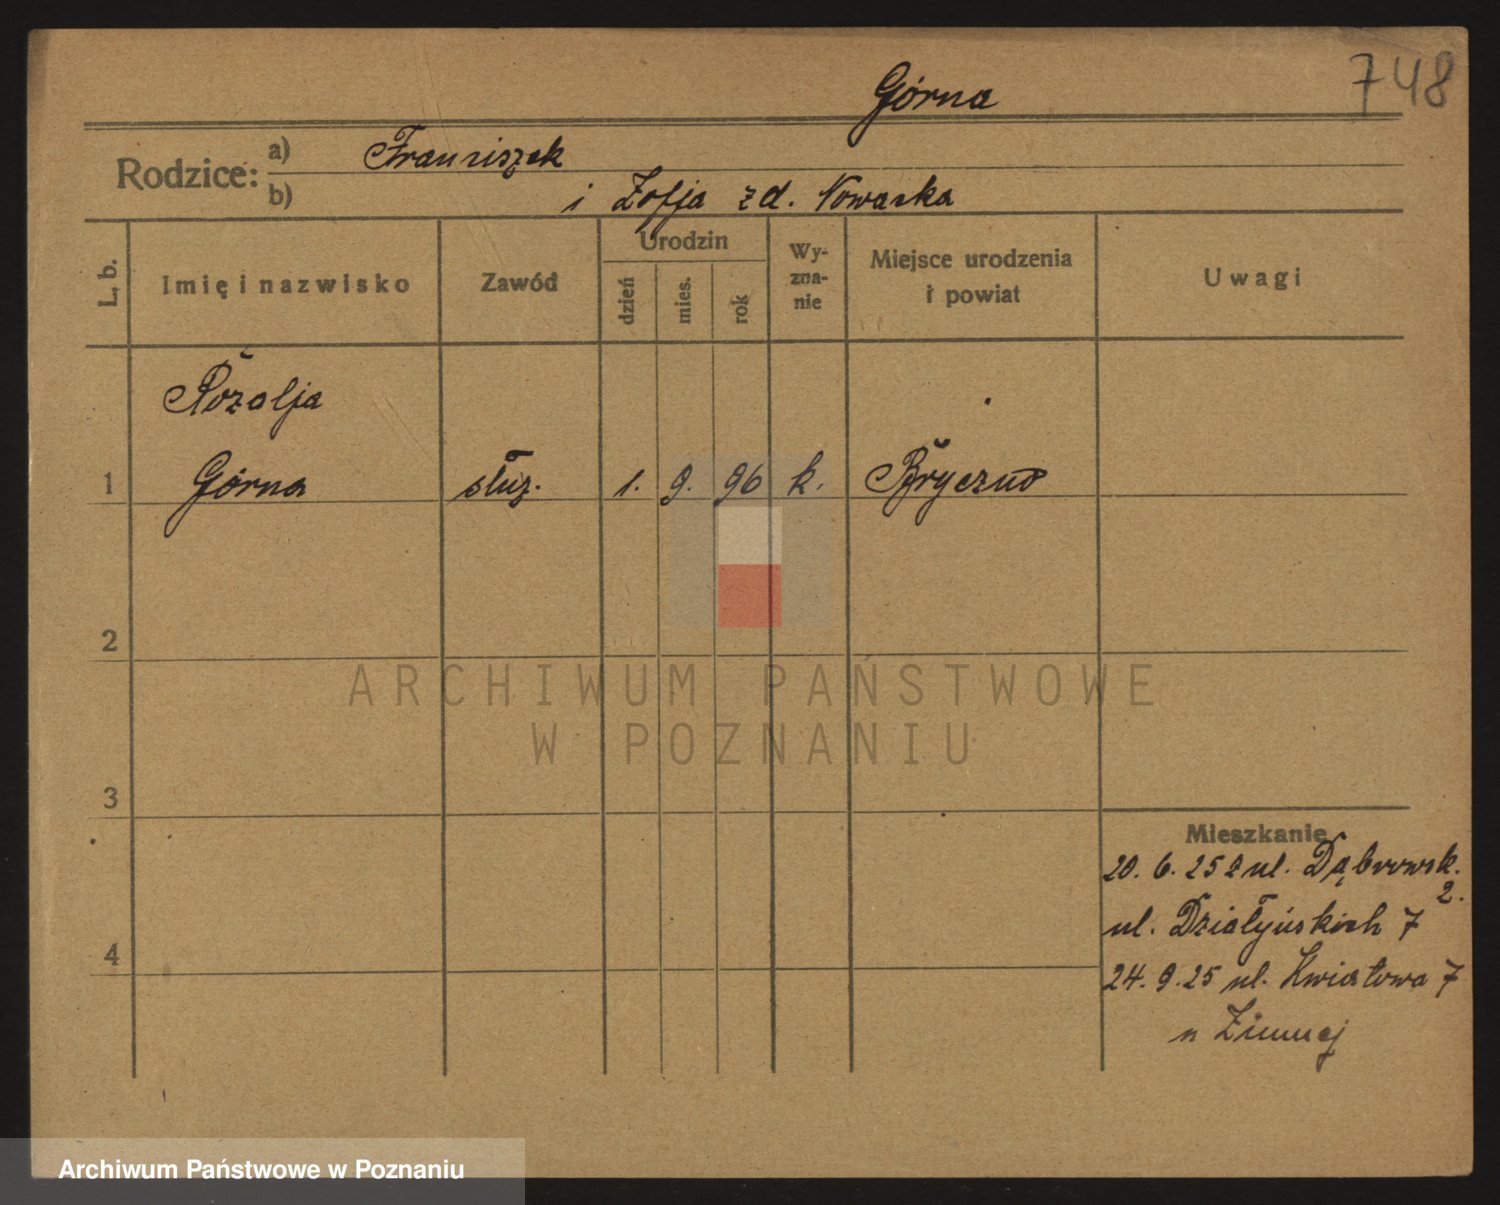 Górna
748
Rodzice:
a) Franciszek
b) i Zofja zd. Nowacka
L. b.
Imię i nazwisko
Zawód
Urodzin
dzień
mies.
rok
Wy-
zna-
nie
Miejsce urodzenia
i powiat
Uwagi
Rozalja
1 Górna służ. 1. 9. 96 k.
2
3
4
Mieszkanie
20. 6. 25 z ul. Dąbrowsk.
2.
ul. Działyńskich 7
24. 9. 25 ul. Kwiatowa 7
u Zimnej
ARCHIWUM PAŃSTWOWE
W POZNANIU
Archiwum Państwowe w Poznaniu